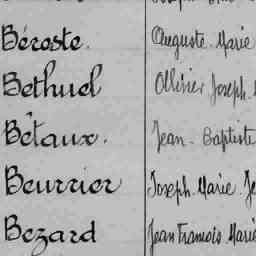 Béroste. Auguste Marie
Bethuel Ollivier Joseph.
Bétaux. Jean-Baptiste
Beurrier Joseph. Marie.
Bezard Jean François Marie